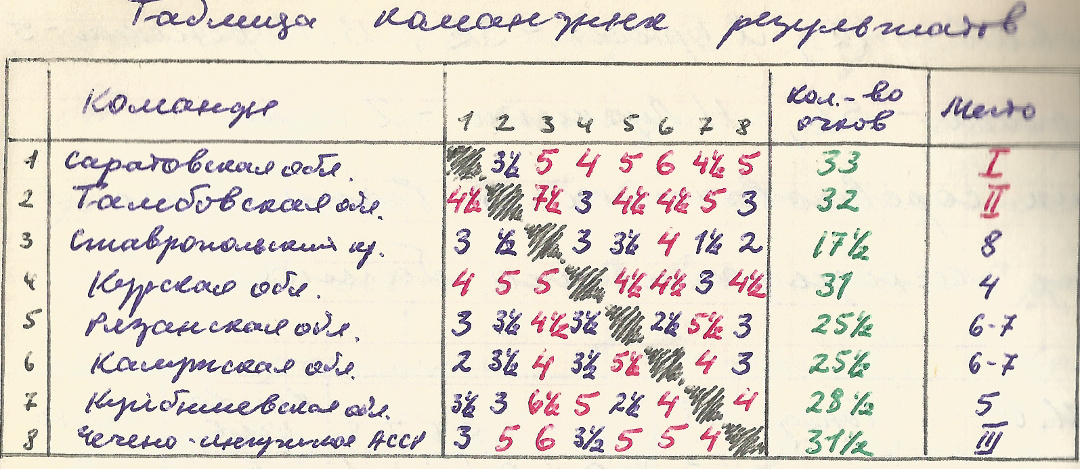 Таблица командных результатов
Команды 1 2 3 4 5 6 7 8 кол.-во очков Место
1 Саратовская обл. 3½ 5 4 5 6 4½ 5 33 I
2 Тамбовская обл. 4½ 7½ 3 4½ 4½ 5 3 32 II
3 Ставропольский кр. 3 ½ 3 3½ 4 1½ 2 17½ 8
4 Курская обл. 4 5 5 4½ 4½ 3 4½ 31 4
5 Рязанская обл. 3 3½ 4½ 3½ 2½ 5½ 3 25½ 6-7
6 Калужская обл. 2 3½ 4 3½ 5½ 4 3 25½ 6-7
7 Куйбышевская обл. 3½ 3 6½ 5 2½ 4 4 28½ 5
8 Чечено-Ингушская АССР 3 5 6 3½ 5 5 4 31½ III